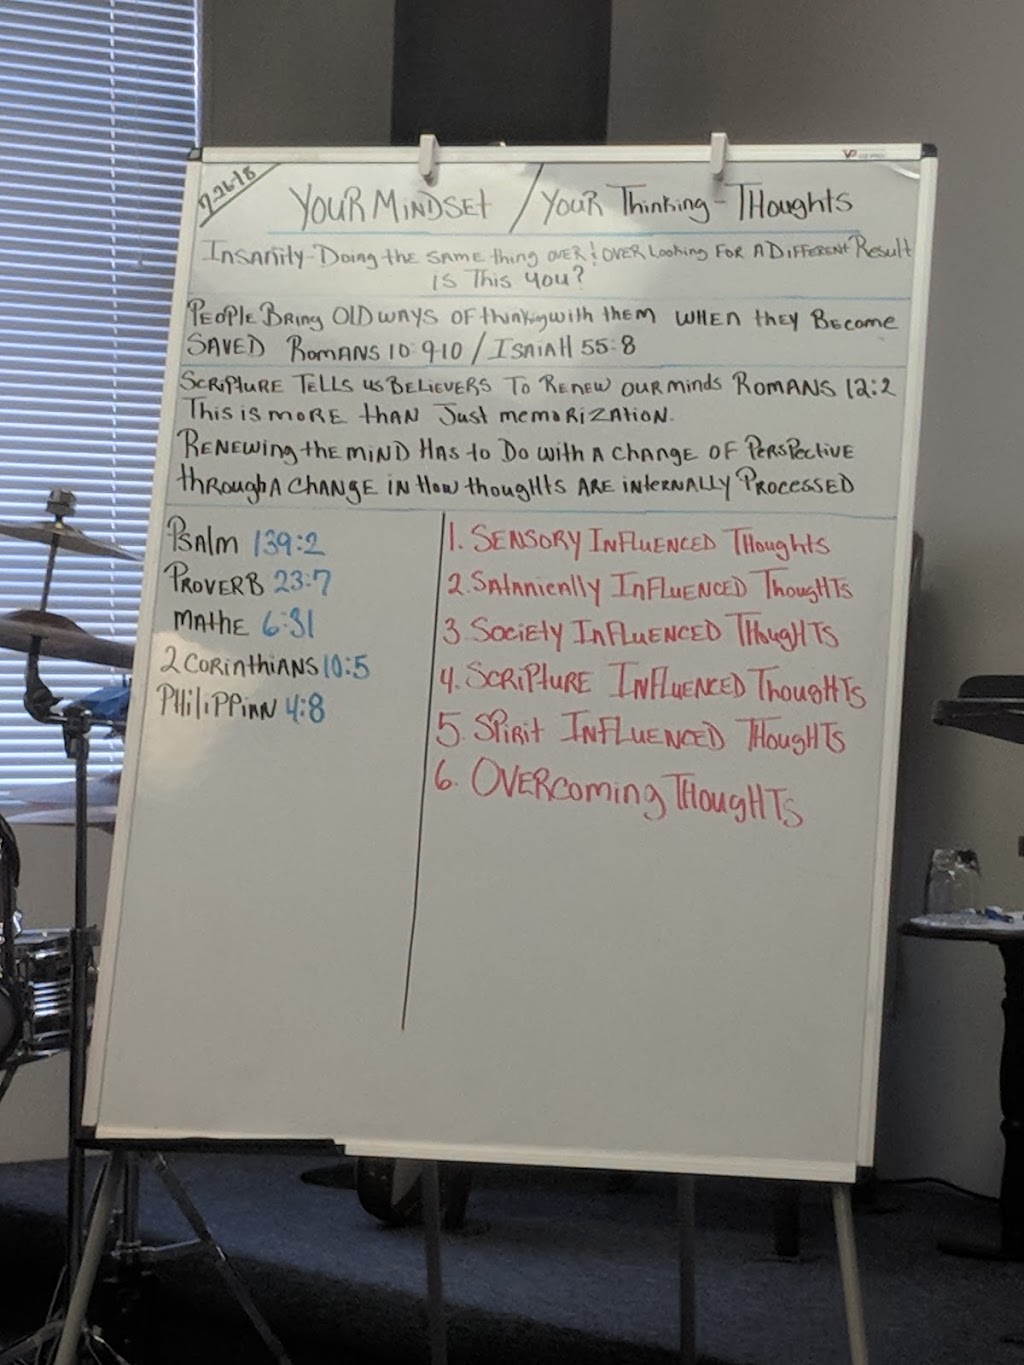 7-26-18
YOUR MINDSET / YOUR Thinking - THoughts
INSANITY - Doing the SAME thing OVER & OVER Looking FOR A DIFFERENT Result
IS This YOU?
PEOPLE BRing OLD WAYS OF thinking with them WHEN they BECOME
SAVED ROMANS 10:9-10 / ISAIAH 55:8
SCRIPTURE TELLS US BELIEVERS TO RENEW OUR minds ROMANS 12:2
This is moRE tHAN Just memoRIZATION.
RENEWing the miND HAS to Do with A change OF PERSPective
through A CHANGE IN How thoughts ARE inteRNALLY PROCESSED
PSAlm 139:2
PROVERB 23:7
MAtHE 6:31
2 CORINTHIANS 10:5
PHiliPPiAN 4:8
1. SENSORY INFLUENCED THoughts
2. SATANically INFLUENCED ThougHTS
3. SOCIETY INFLUENCED THougHTS
4. SCRIPTURE INFLUENCED ThougHTS
5. SPIRIT INFLUENCED THougHTS
6. OVERcoming THougHTS